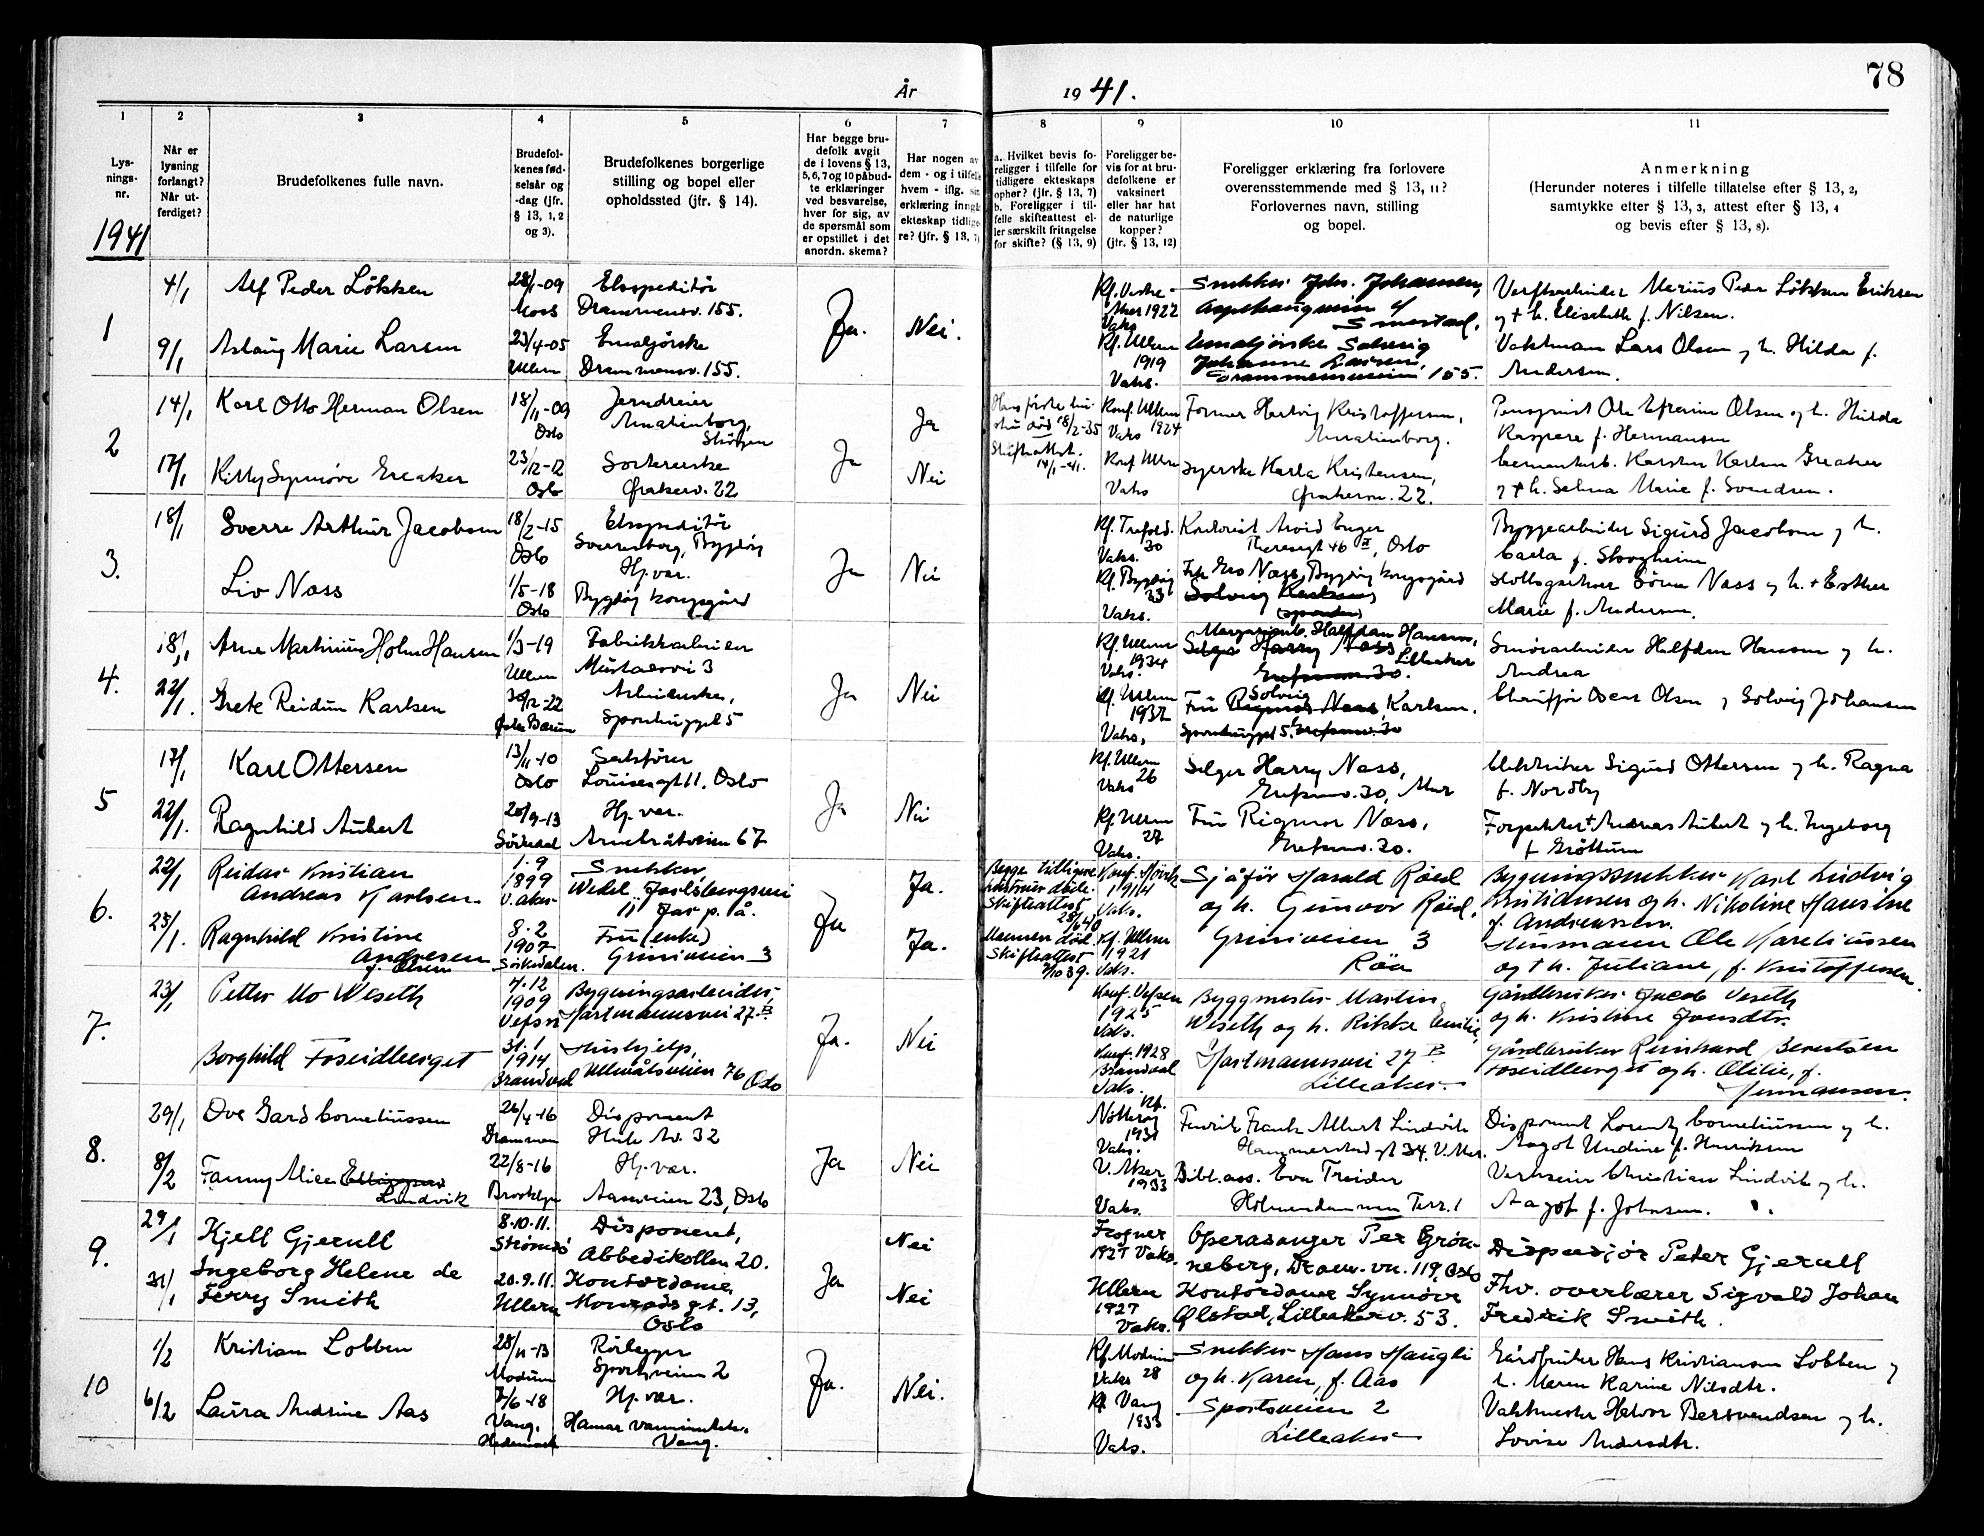 78
År 1941.
1
2
3
4
5
6
7
8
9
10
11
Lys-
nings-
nr.
Når er
lysning
forlangt?
Når ut-
ferdiget?
Brudefolkenes fulle navn.
Brudefol-
kenes fød-
selsår og
-dag (jfr.
§ 13, 1, 2
og 3).
Brudefolkenes borgerlige
stilling og bopel eller
opholdssted (jfr. § 14).
Har begge bru-
defolk avgit
de i lovens § 13,
5, 6, 7 og 10 påbud-
te erklæringer
ved besvarelse,
hver for sig, av
de spørsmål som
er opstillet i det
anordn. skema?
Har nogen av
dem - og i tilfelle
hvem - iflg. sin
erklæring inngå
ekteskap tidlige-
re? (jfr. § 13, 7)
a. Hvilket bevis fo-
religger i tilfelle for
tidligere ekteskaps
ophør? (jfr. § 13, 7)
b. Foreligger i til-
felle skifteattest el-
ler særskilt fritagelse
for skifte? (§ 13, 9)
Foreligger be-
vis for at bru-
defolkene er
vaksinert
eller har hat
de naturlige
kopper?
(jfr. § 13, 12)
Foreligger erklæring fra forlovere
overensstemmende med § 13, 11?
Forlovernes navn, stilling
og bopel.
Anmerkning
(Herunder noteres i tilfelle tillatelse efter § 13, 2,
samtykke efter § 13, 3, attest efter § 13, 4
og bevis efter § 13, 8).
1941
1
4/1 Alf Peder Løkken 28/1-09 Ekspeditør
Moss Drammensv. 155.
Ja. Nei.
1922 Vaks Snekker Johs. Johansen,
Smestad.
Verftsarbeider Marius Peder Løkken Eriksen
og + h. Elisabeth f. Nilsen.
9/1 Aslaug Marie Larsen 23/4-05
Ullern Drammensv. 155.
Kf. Ullern 1919 Vaks. Solveig
Johanne Larsen, Drammensveien 155.
Vaktmann Lars Olsen og h. Hilda f.
Andersen.
2
14/1 Karl Otto Herman Olsen 18/11-09 Oslo Jerndreier
Amalienborg,
Ja Ja
Hans første hu-
stru død 18/2-35
Skifteattest. 14/1-41.
Konf. Ullern 1924 Vaks Former Hertvig Kristoffersen,
Amalienborg.
Pensjonist Ole Efraim Olsen og h. Hulda
f. Hermansen
17/1 Kitty Synnøve Greaker 23/12-12 Oslo Sorterske
22
Nei
Konf Ullern Vaks Syerske Karla Kristensen,
22.
Karsten Karlsen Greaker
og + h. Selma Marie f. Svendsen.
3.
18/1 Sverre Arthur Jacobsen 18/2-15 Oslo Ekspeditør
Bygdøy
Ja Nei
Kf. Trefold. 30 Vaks. Arvid Enger
Theresesgt 46 II, Oslo
Byggearbeider Sigurd Jacobsen og h.
Carla f. Skogheim
Liv Næss 1/5-18 Oslo Hj. vær.
Bygdøy kongsgård
Kf. Bygdøy 33 Vaks. Frk Gro Næss, Bygdøy kongsgård
Næss og h. + Esther
Marie f. Andersen.
4.
18/1 Arne Martinius Holm Hansen 1/3-19 Ullern Fabrikkarbeider
Mustadsvei 3
Ja Nei
Kf. Ullern 1934 Vaks. Halfdan Hansen,
Lilleaker
Halfdan Hansen og h.
Andrea
22/1. Grete Reidun Karlsen 30/12-22 Østre Bærum Arbeiderske,
5
Kf. Ullern 1937 Vaks. Fru Solveig Karlsen.
Chauffør Oscar Olsen og Solveig Johansen
5
17/1 Karl Ottersen 13/11-10 Oslo
Louisesgt 11. Oslo
Ja Nei
Kf. Ullern 26 Vaks Selger Harry Næss,
30, Aker
Sigurd Ottersen og h. Ragna
f. Nordby
22/1. Ragnhild Aubert 20/9-13 Sørkedal Hj. vær.
Arnebråtveien 67
Kf. Ullern 27 Vaks. Fru Rigmor Næss,
30.
Forpakter + Andreas Aubert og h. Ingeborg
f Grøttum
6.
22/1 Reidar Kristian
Andreas Karlsen. 1.9 1899 V. Aker Snekker,
Wedel Jarlsbergsvei
11 Jar p. å.
Ja Ja.
Begge tidligere
Skifteattest
Konf. 1914 Vaks. Sjåfør Harald Røed
og h. Gunvor Røed,
Bygningssnekker Karl Ludvig
Kristiansen og h. Nikoline Hansine
f. Andreassen.
25/1. Ragnhild Kristine
Andresen f. Olsen 8.2 1907 Sørkedalen. Fru (enke)
Griniveien 3
Ja.
Mannen død.
Skifteattest
Kf. Ullern 1921 Vaks. Griniveien 3
Røa
Husmann Ole Kareliussen
og + h. Juliane, f. Kristoffersen.
7.
23/1 Petter Mo Weseth 4.12 1909 Vefsn Bygningsarbeider,
Hartmannsvei 27 B
Ja. Nei
Konf. Vefsen 1925 Vaks. Byggmester Martin
Weseth og h. Rikke Emilie,
Gårdbruker Jacob Veseth
og h. Kristine Jonsdtr.
Borghild Foseidberget 31.1 1914 Brandval Hushjelp,
Ullevålsveien 76 Oslo
Konf. 1928 Brandval Vaks. Hartmannsvei 27 B
Lilleaker
Gårdbruker Reinhard Berntsen
Foseidberget og h. Otilie, f.
Hermansen.
8.
29/1 Ove Gard Corneliussen 26/4-16 Drammen Disponent
32
Ja Nei
Kf. Nøtterøy 1931 Vaks. Henrik Frank Albert Lindvik
Hammerstad gt 34. V. Aker.
Disponent Lorentz Corneliussen og h.
Aagot Undine f. Henriksen
8/2 Fanny Alice Lindvik 22/8-16 Brooklyn Hj. vær.
Aasaveien 23, Oslo
V. Aker 1933 Vaks. Bibl. ass. Eva Treider
Holmendammen Terr. 1
Christian Lindvik og h.
Aagot f. Johnsen.
9.
29/1 Kjell Gjerull 8.10.11. Strømsø Disponent,
Abbedikollen 20.
Ja Nei
Frogner 1927 Vaks. Operasanger Per Grøn-
neberg, Dram. vn. 119, Oslo
Dispasjør Peter Gjerull
31/1 Ingeborg Helene de
Ferry Smith 20.9.11. Ullern Kontordame,
Monrads gt. 13,
Oslo
Nei
Ullern 1927 Vaks. Kontordame Synnøve
Ølstad, Lilleakerv. 53.
Fhv. overlærer Sigvald Johan
Frederik Smith.
10
1/2 Kristian Lobben 28/11-13 Modum Rørlegger
Sportsveien 2
Ja. Nei.
Kf. Modum Vaks 28 Snekker Hans Haugli
og h. Karen, f. Aas
Gårdbruker Hans Kristiansen Lobben og
h. Maren Karine Nilsdtr.
6/2 Laura Andrine Aas 7/6-18 Vang, Hedemark Hj. vær.
Hamar
Vang.
Kf Vang 1933 Vaks. Sportsveien 2
Lilleaker
Vaktmester Halvor Bersvendsen og h.
Lovise Andersdtr.